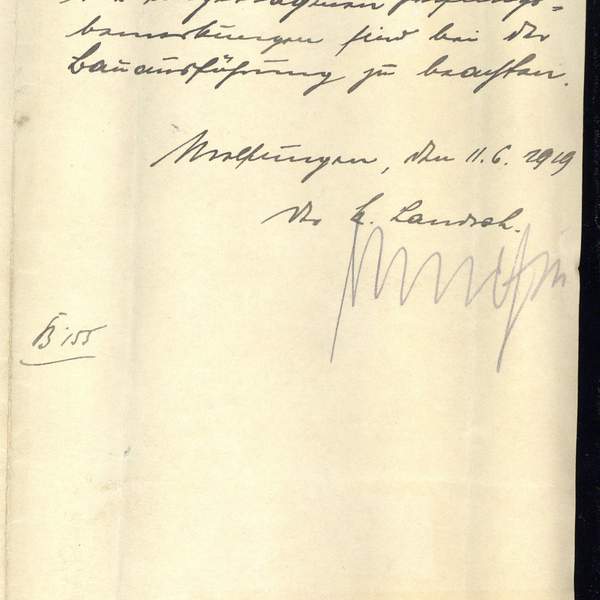 eingetragenen Prüfungs-
bemerkungen sind bei der
Bauausführung zu beachten.
Melsungen, den 11.6.1919
Der k. Landrat.
B 155